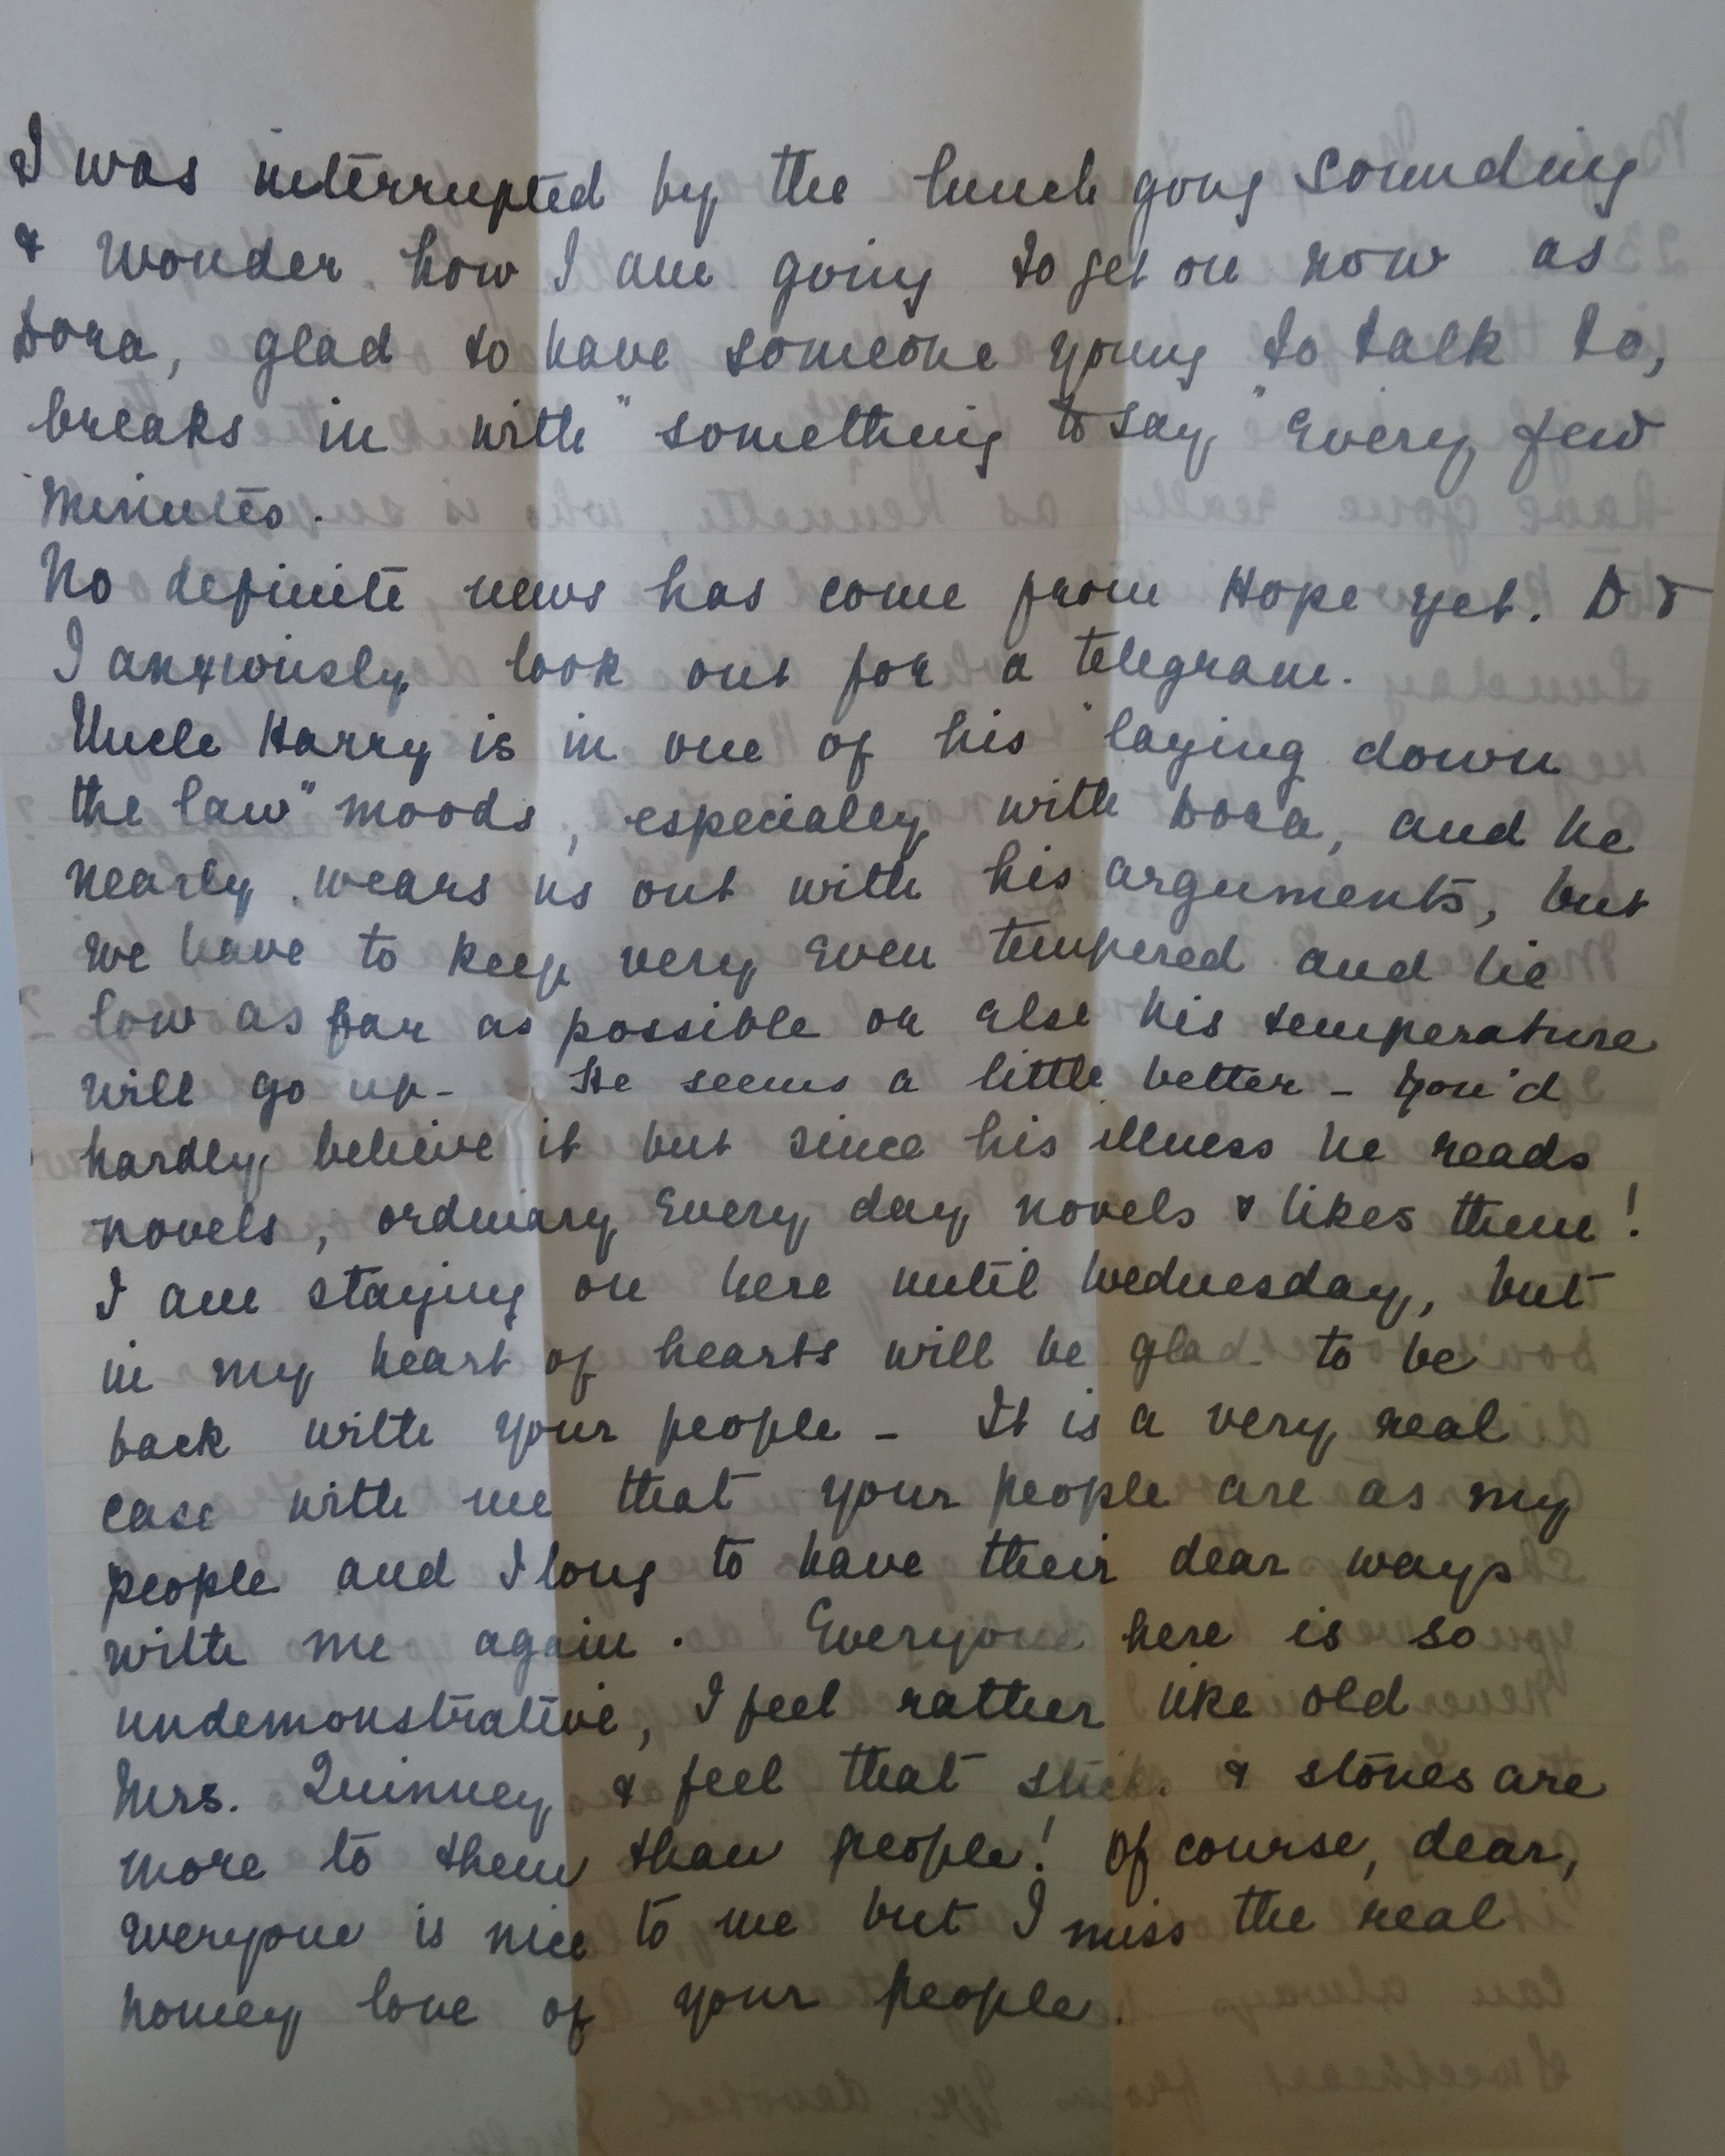 I was interrupted by the lunch gong sounding
& wonder how I am going to get on now as
Dora, glad to have someone young to talk to,
breaks in with "something to say" every few
minutes.
No definite news has come from Hope yet. D &
I anxiously look out for a telegram.
Uncle Harry is in one of his "laying down
the law" moods, especially with Dora, and he
nearly wears us out with his arguments, but
we have to keep very even tempered and lie
low as far as possible or else his temperature
will go up - He seems a little better - you'd
hardly believe it but since his illness he reads
novels, ordinary every day novels & likes them!
I am staying on here until Wednesday, but
in my heart of hearts will be glad to be
back with your people - It is a very real
case with me that your people are as my
people and I long to have their dear ways
with me again. Everyone here is so
undemonstrative, I feel rather like old
Mrs. Quinney & feel that sticks & stones are
more to them than people! Of course, dear,
everyone is nice to me but I miss the real
homey love of your people.